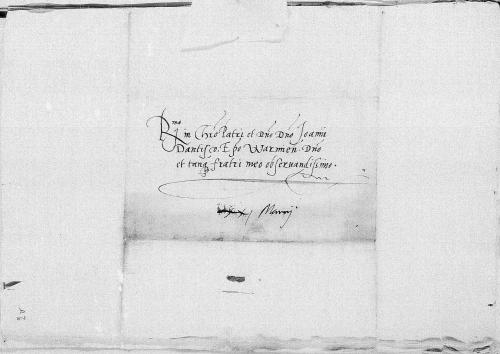 Rmo in Chro Patri et Dno Dno Joanni
Dantisco Epo Warmien Dno
et tanq fratri meo observandissimo.